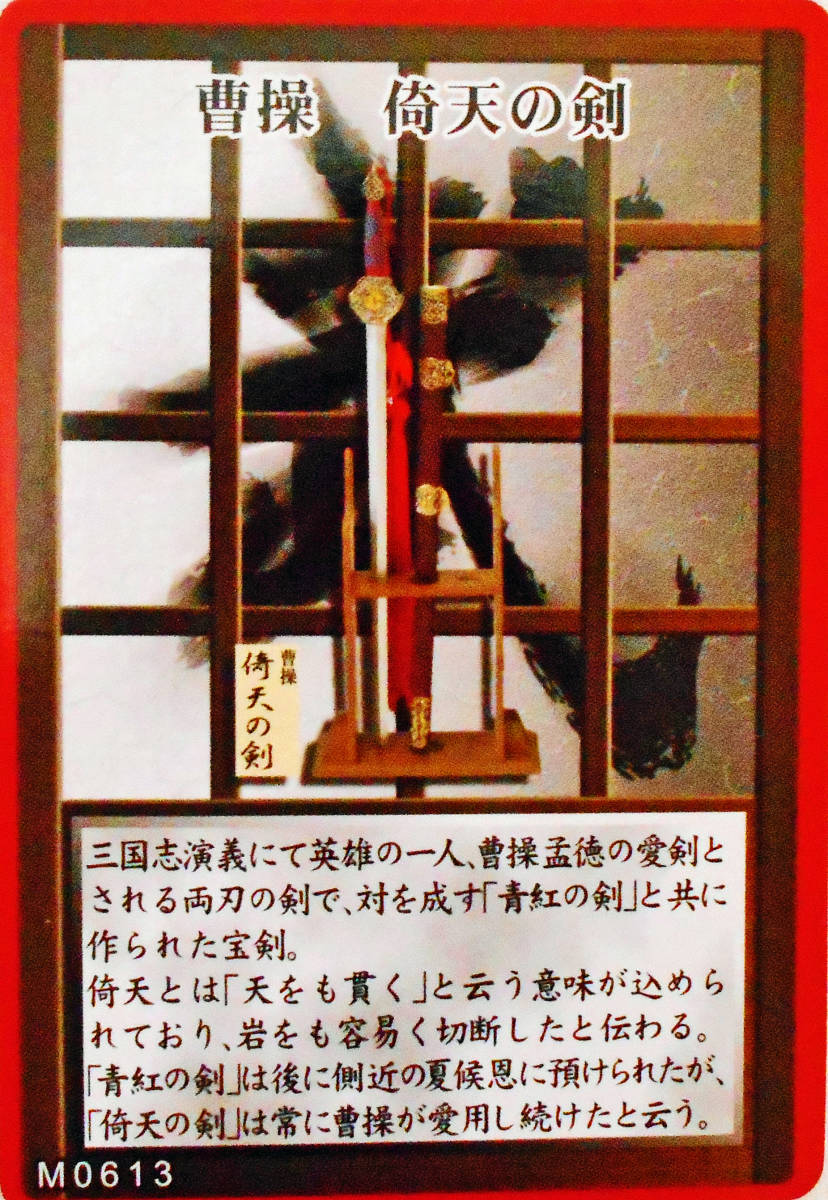 曹操　倚天の剣
曹操
倚天の剣
三国志演義にて英雄の一人、曹操孟徳の愛剣と
される両刃の剣で、対を成す「青紅の剣」と共に
作られた宝剣。
倚天とは「天をも貫く」と云う意味が込めら
れており、岩をも容易く切断したと伝わる。
「青紅の剣」は後に側近の夏候恩に預けられたが、
「倚天の剣」は常に曹操が愛用し続けたと云う。
M0613